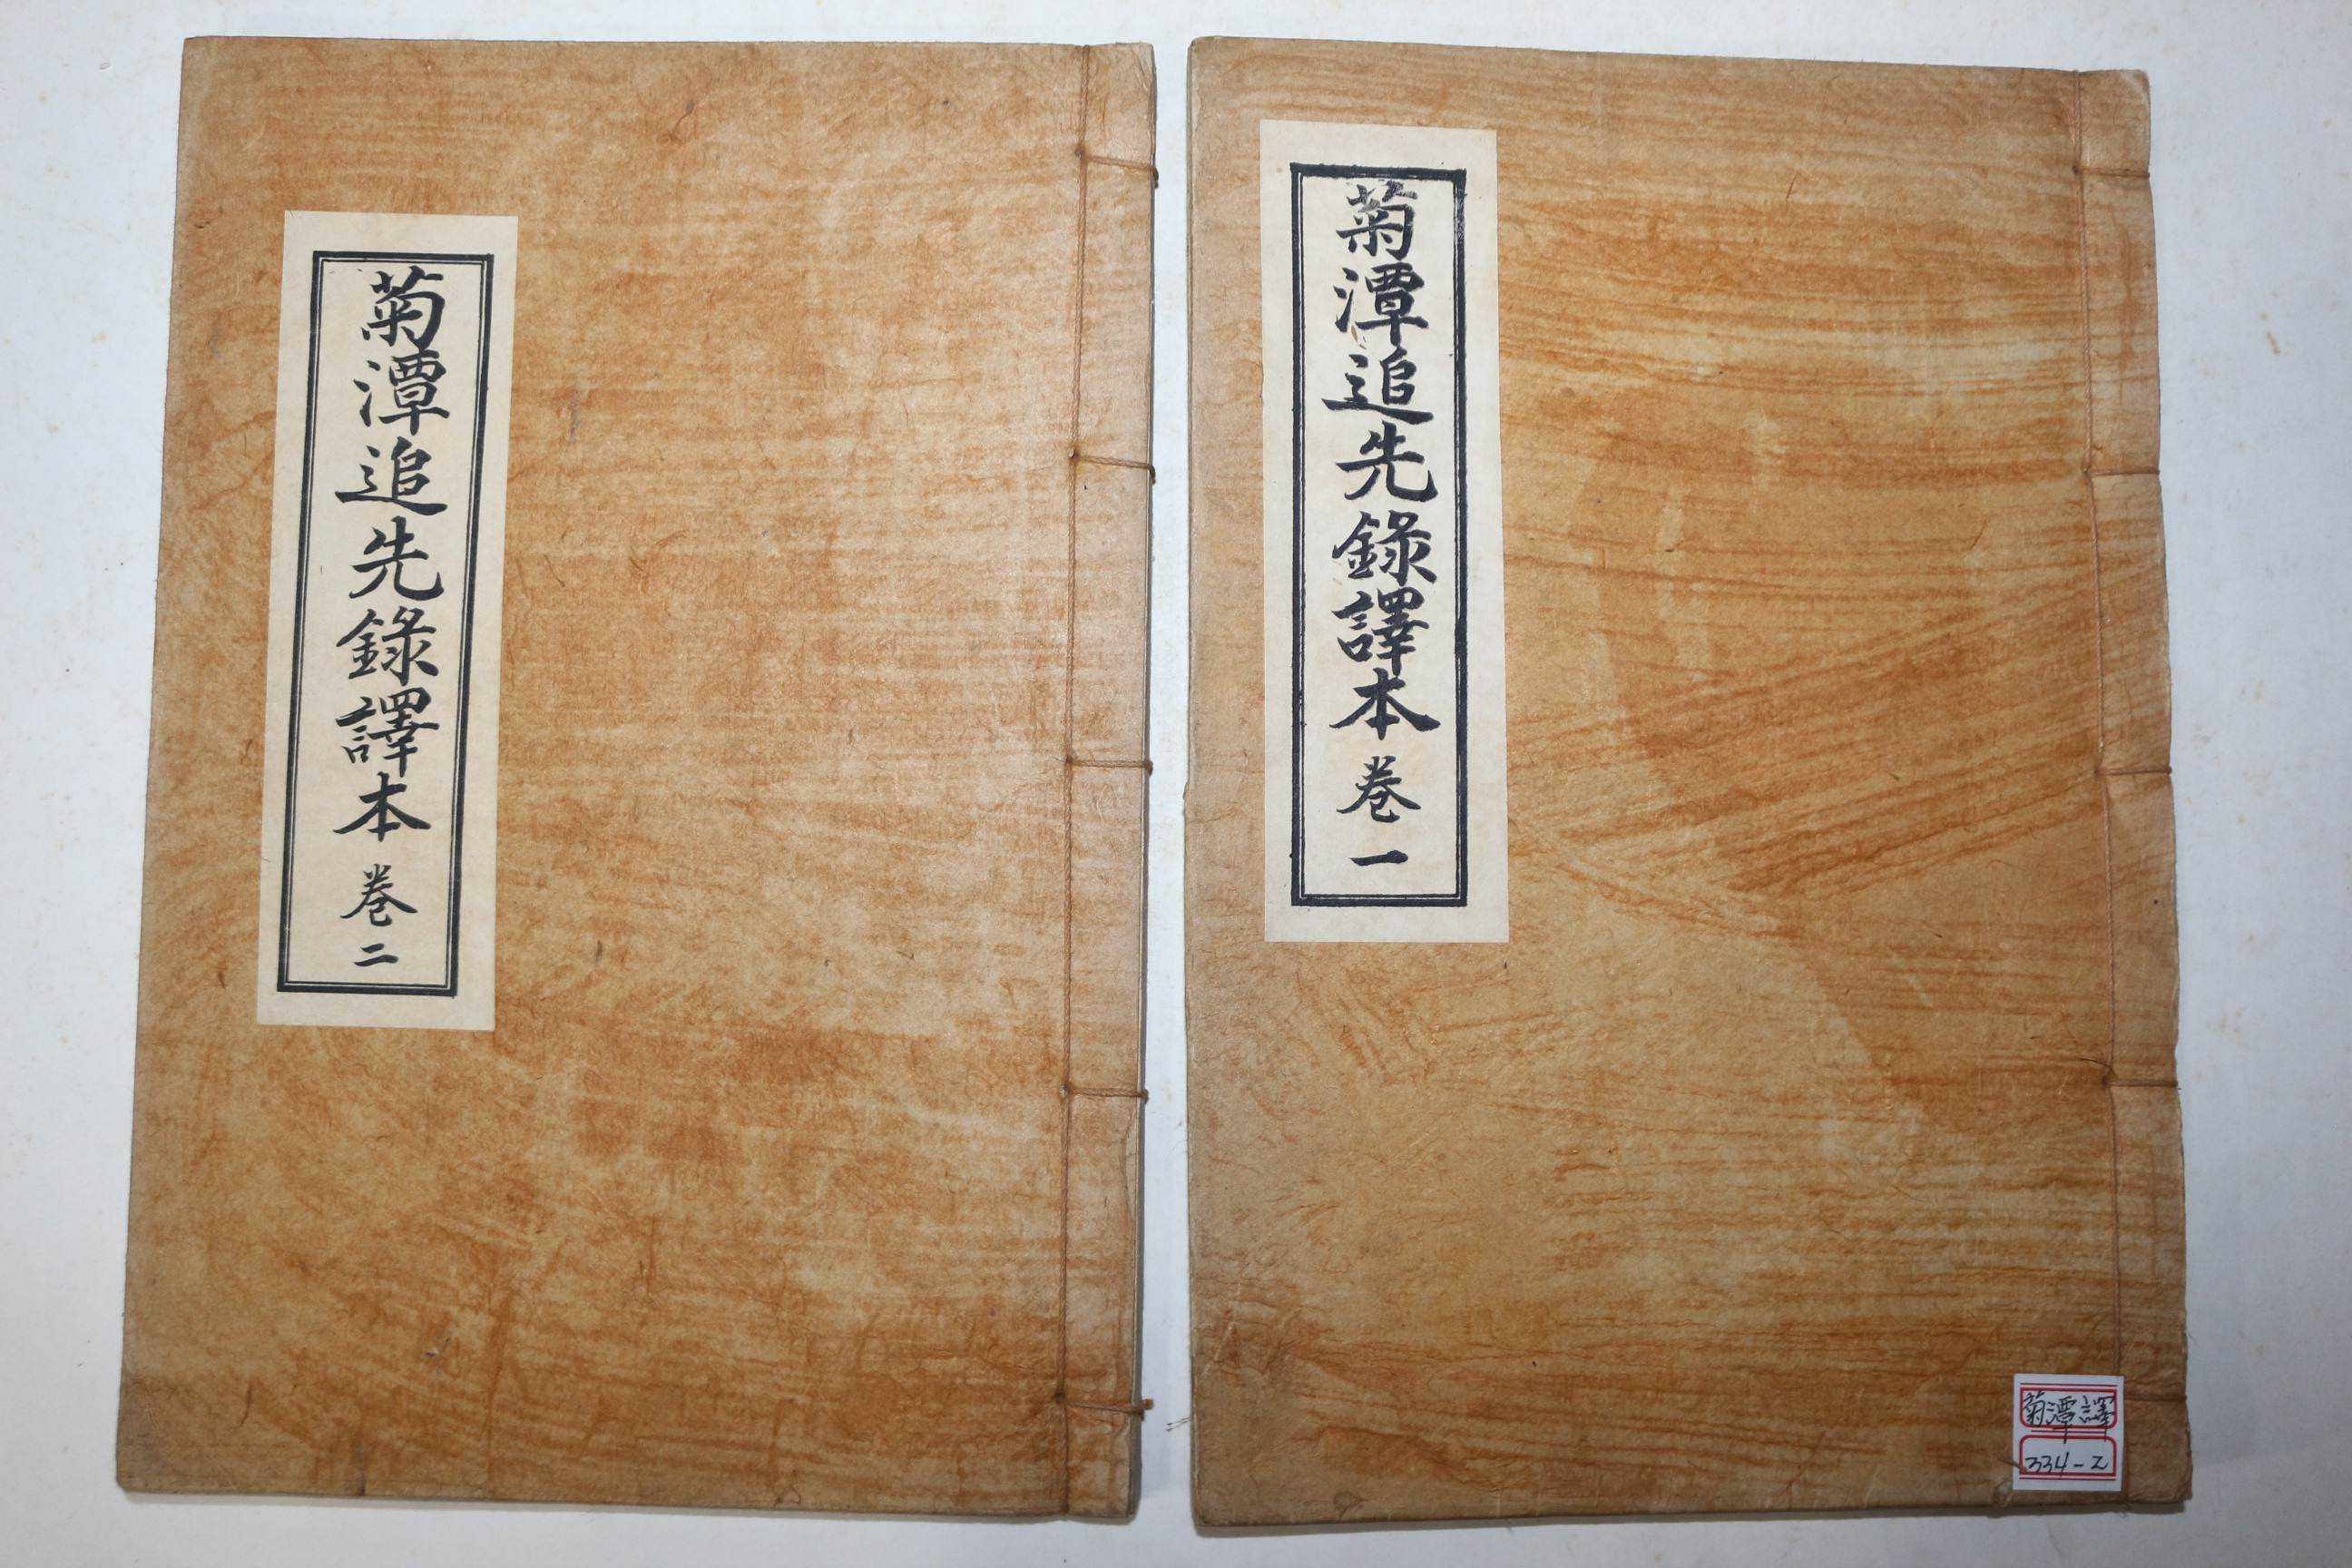 菊潭追先錄譯本 卷一
菊潭追先錄譯本 卷二
菊潭譯
334-2